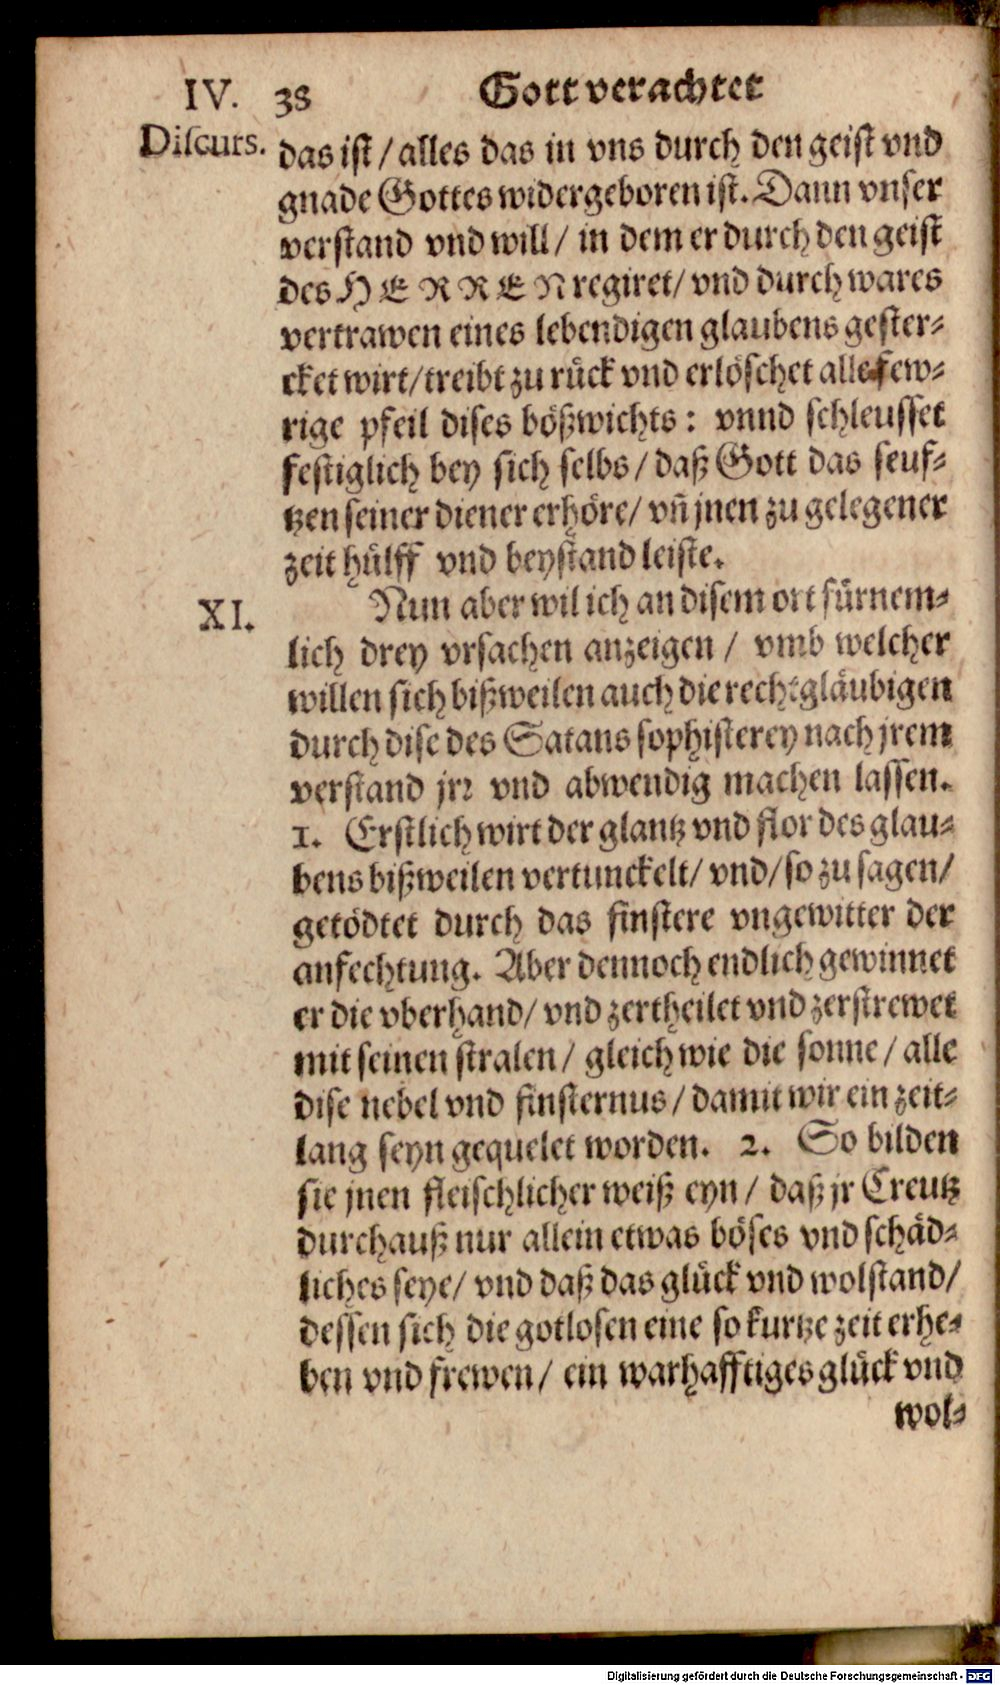 IV. 38 Gott verachtet
Discurs.
das ist / alles das in vns durch den geist vnd
gnade Gottes widergeboren ist. Dann vnser
verstand vnd will / in dem er durch den geist
des HERREN regiret / vnd durch wares
vertrawen eines lebendigen glaubens gester-
cket wirt / treibt zu rück vnd erlöschet alle few-
rige pfeil dises bößwichts: vnnd schleusset
festiglich bey sich selbs / daß Gott das seuf-
tzen seiner diener erhöre / vñ jnen zu gelegener
zeit hülff vnd beystand leiste.
XI. Nun aber wil ich an disem ort fürnem-
lich drey vrsachen anzeigen / vmb welcher
willen sich bißweilen auch die rechtgläubigen
durch dise des Satans sophisterey nach jrem
verstand jrr vnd abwendig machen lassen.
1. Erstlich wirt der glantz vnd flor des glau-
bens bißweilen vertunckelt / vnd / so zu sagen /
getödtet durch das finstere vngewitter der
anfechtung. Aber dennoch endlich gewinnet
er die vberhand / vnd zertheilet vnd zerstrewet
mit seinen stralen / gleich wie die sonne / alle
dise nebel vnd finsternus / damit wir ein zeit-
lang seyn gequelet worden. 2. So bilden
sie jnen fleischlicher weiß eyn / daß jr Creutz
durchauß nur allein etwas böses vnd schäd-
liches seye / vnd daß das glück vnd wolstand /
dessen sich die gotlosen eine so kurtze zeit erhe-
ben vnd frewen / ein warhafftiges glück vnd
wol-
Digitalisierung gefördert durch die Deutsche Forschungsgemeinschaft - DFG